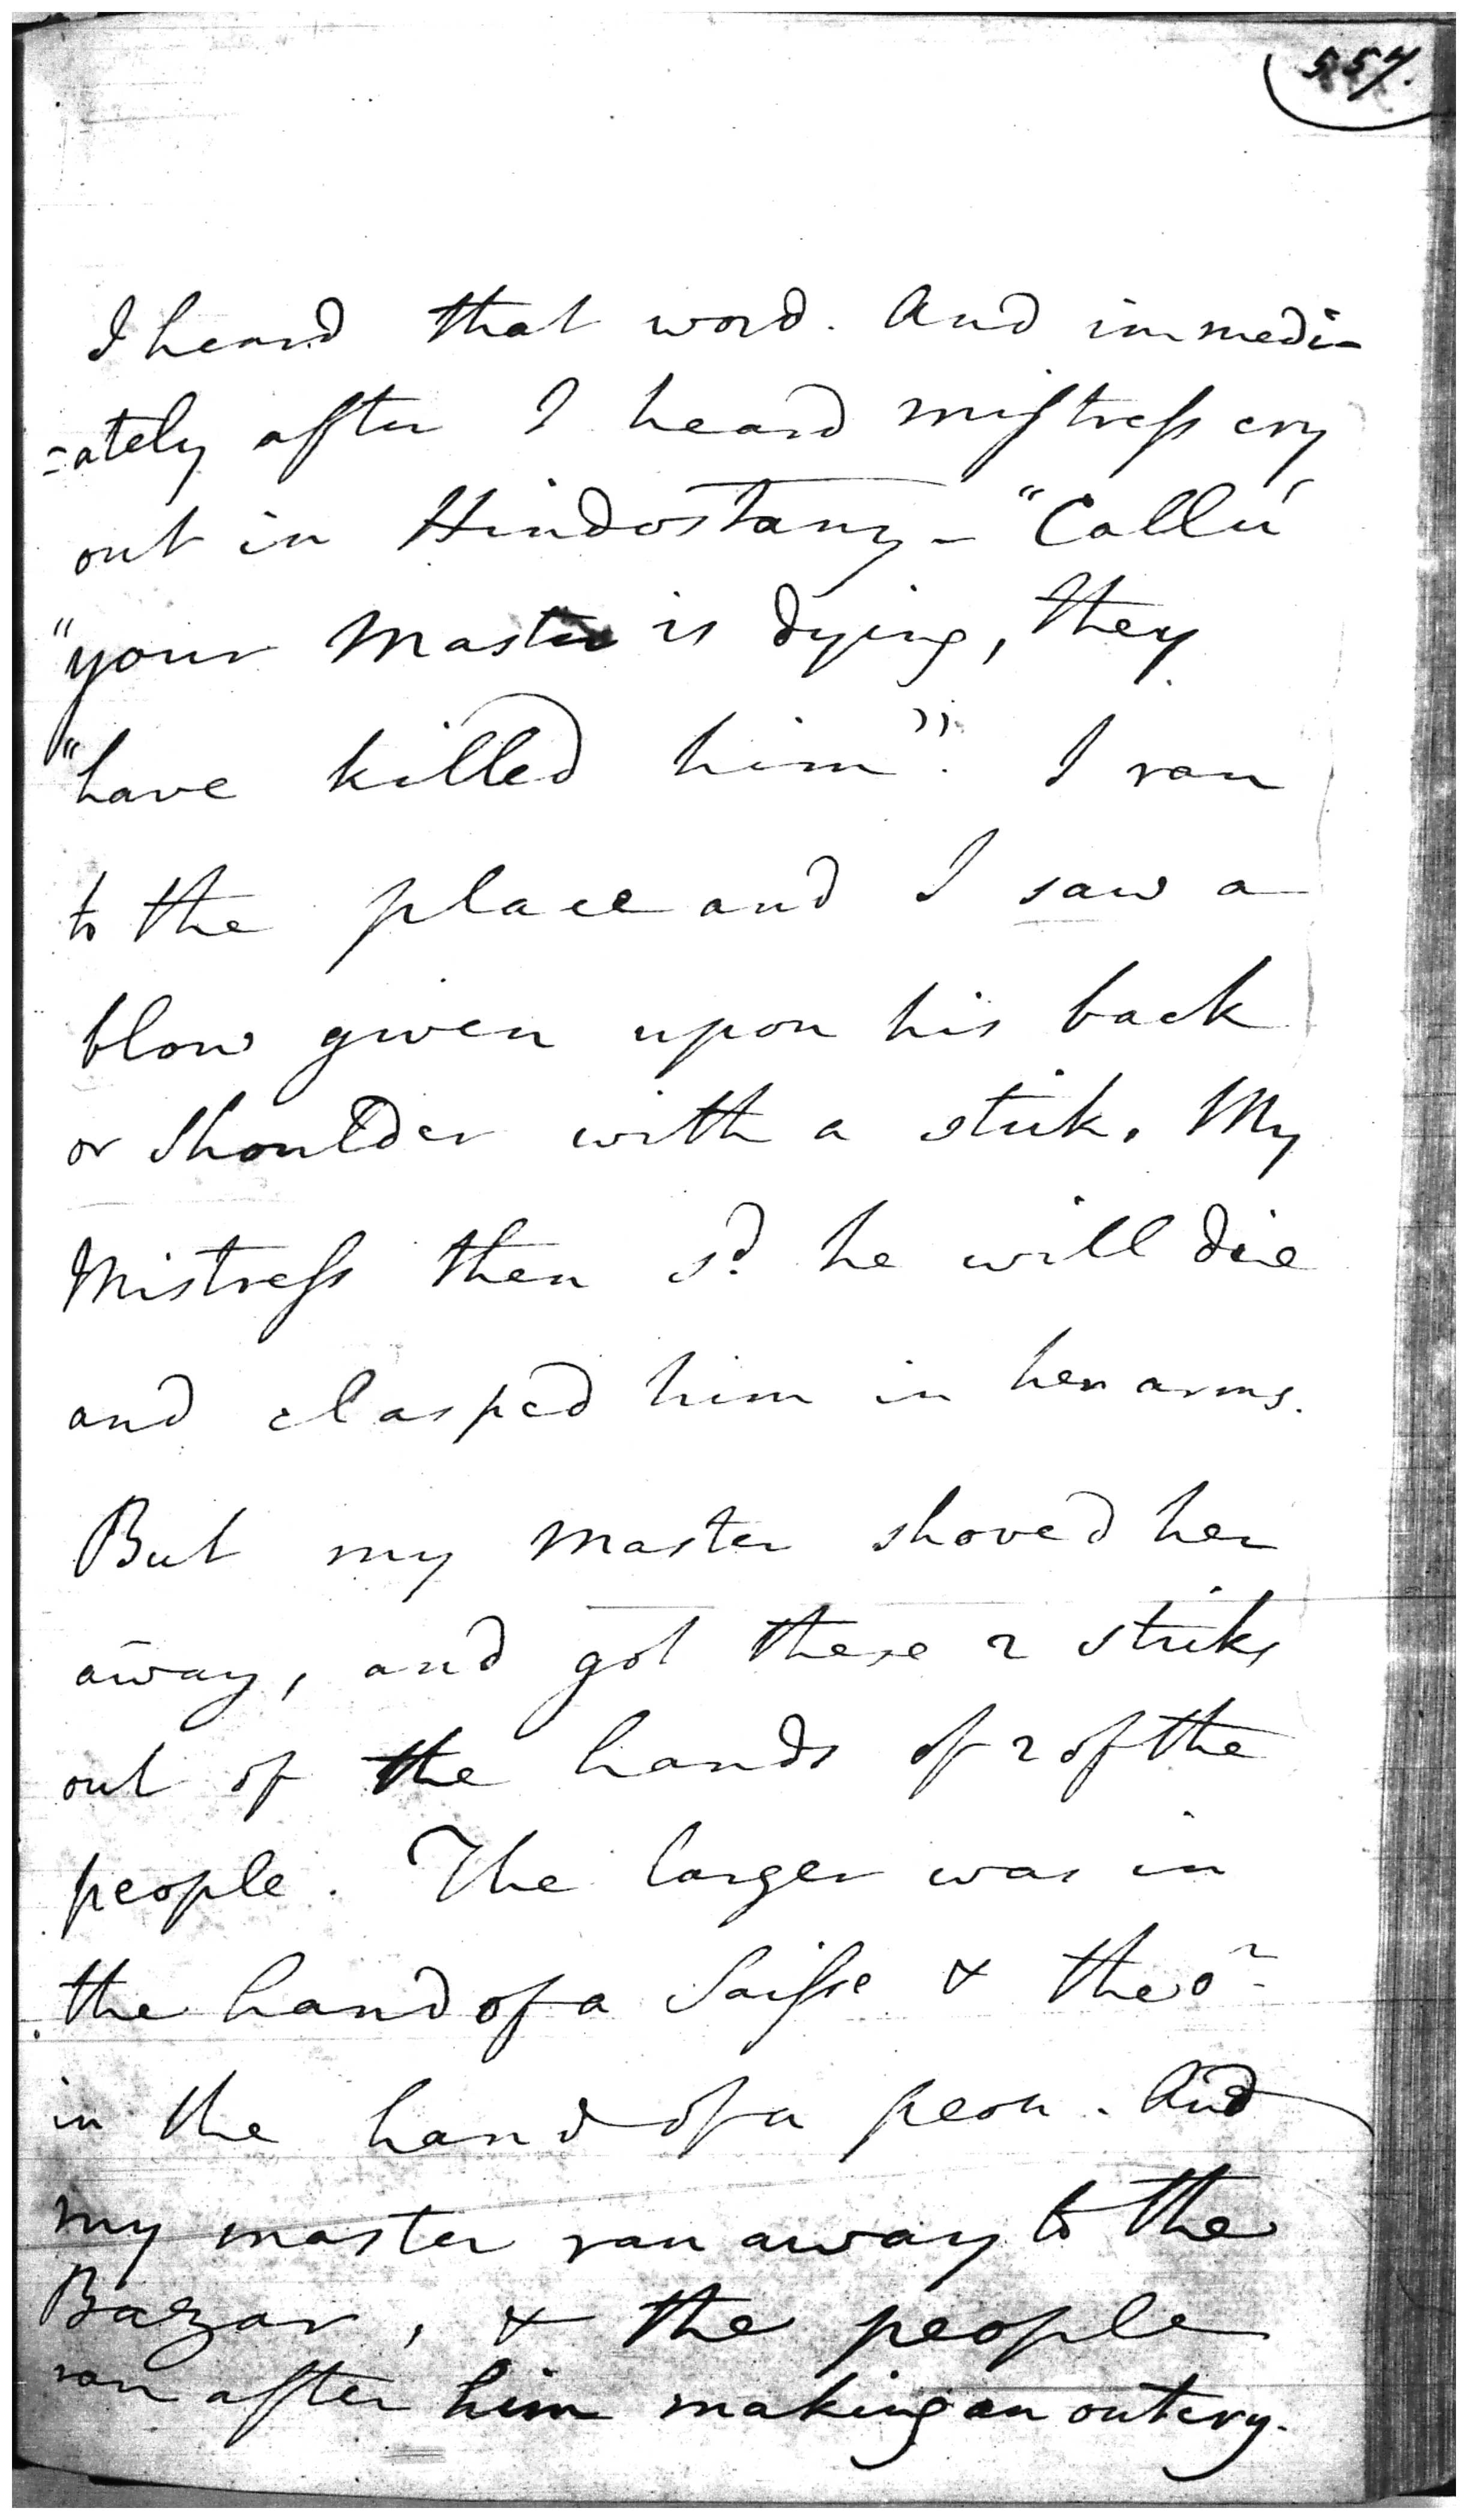 557.
I heard that word. And immedi-
=ately after I heard mistress cry
out in Hindostany - "Callu
"your Master is dying, they
"have killed him". I ran
to the place and I saw a
blow given upon his back
or Shoulder with a stick. My
Mistress then sd. he will die
and clasped him in her arms.
But my Master shoved her
away, and got these 2 sticks
out of the hands of 2 of the
people. The larger was in
the hand of a Saisse & the or
in the hand of a peon. And
my master ran away to the
Bazar, & the people
ran after him making an outcry.